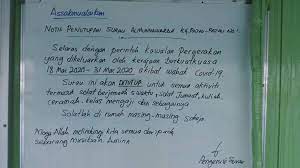 Assalamualaikum
Notis Penutupan Surau
Selaras dengan perintah kawalan pergerakan
yang dikeluarkan oleh kerajaan berkuatkuasa
18 Mac 2020 – 31 Mac 2020 akibat wabak Covid-19.
Surau ini akan DITUTUP untuk semua aktiviti
termasuk solat berjemaah 5 waktu, solat Jumaat, kuliah,
ceramah, kelas mengaji dan sebagainya.
Solatlah di rumah masing-masing sahaja.
Moga Allah melindungi kita semua daripada
sebarang
Pengerusi Surau